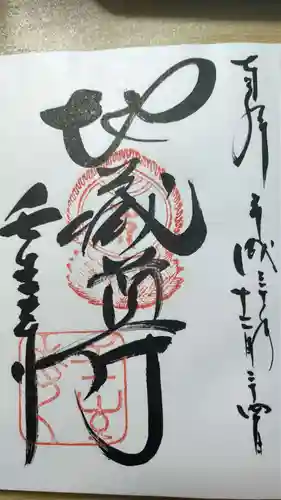 奉拝 平成三十年十二月二十四日
地蔵尊
壬生寺